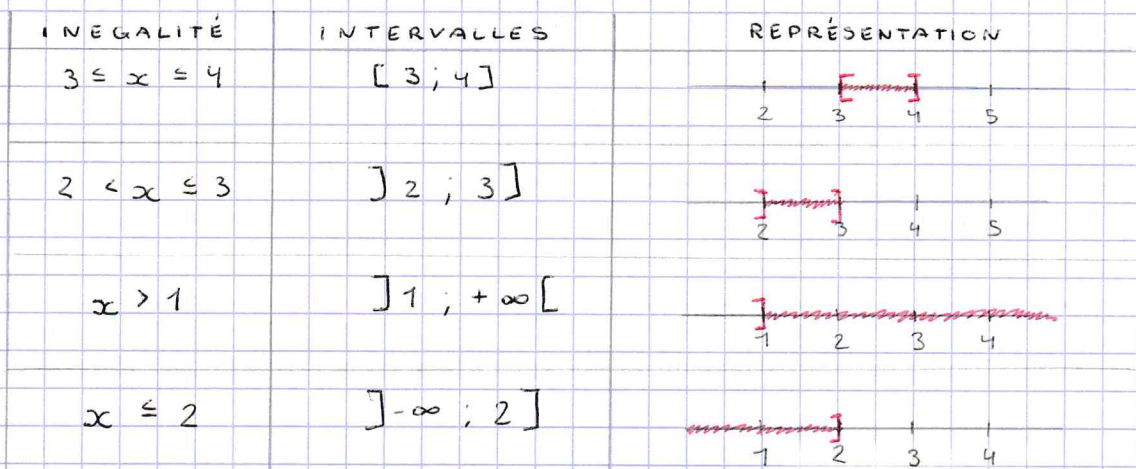 INEGALITÉ INTERVALLES REPRÉSENTATION
3 ≤ x ≤ 4 [ 3 ; 4 ]
2 3 4 5
2 < x ≤ 3 ] 2 ; 3 ]
2 3 4 5
x > 1 ] 1 ; + ∞ [
1 2 3 4
x ≤ 2 ] - ∞ ; 2 ]
1 2 3 4